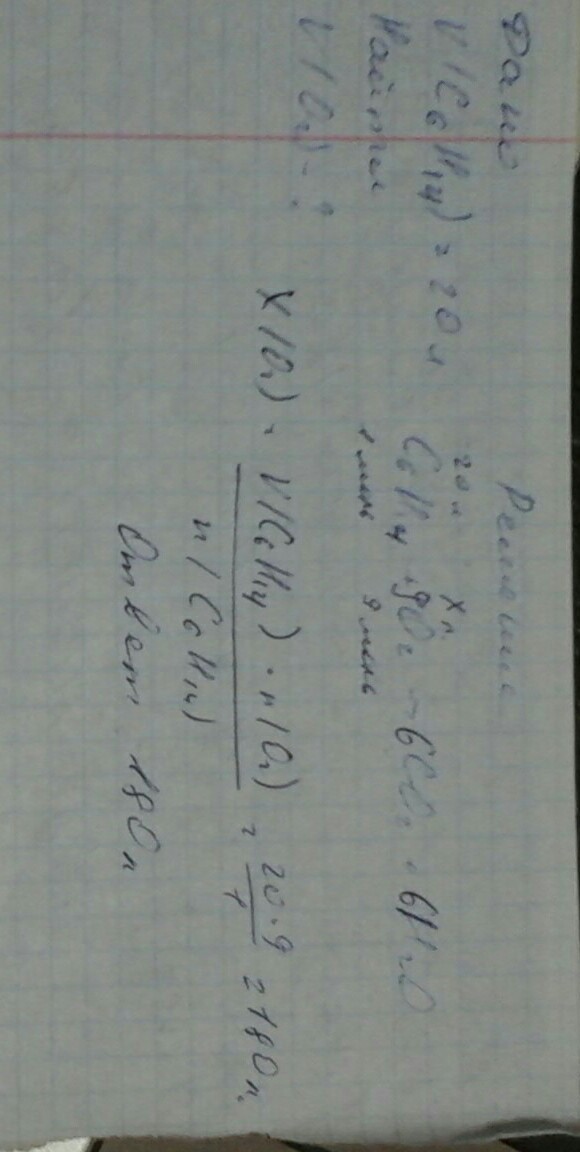 Дано
V(C6H14) = 20 л
Найти
V(O2) - ?
Решение
20 л x л
C6H14 + 9O2 → 6CO2 + 6H2O
1 моль 9 моль
X(O2) = V(C6H14) · n(O2) / n(C6H14) = 20·9 / 1 = 180 л
Ответ 180 л